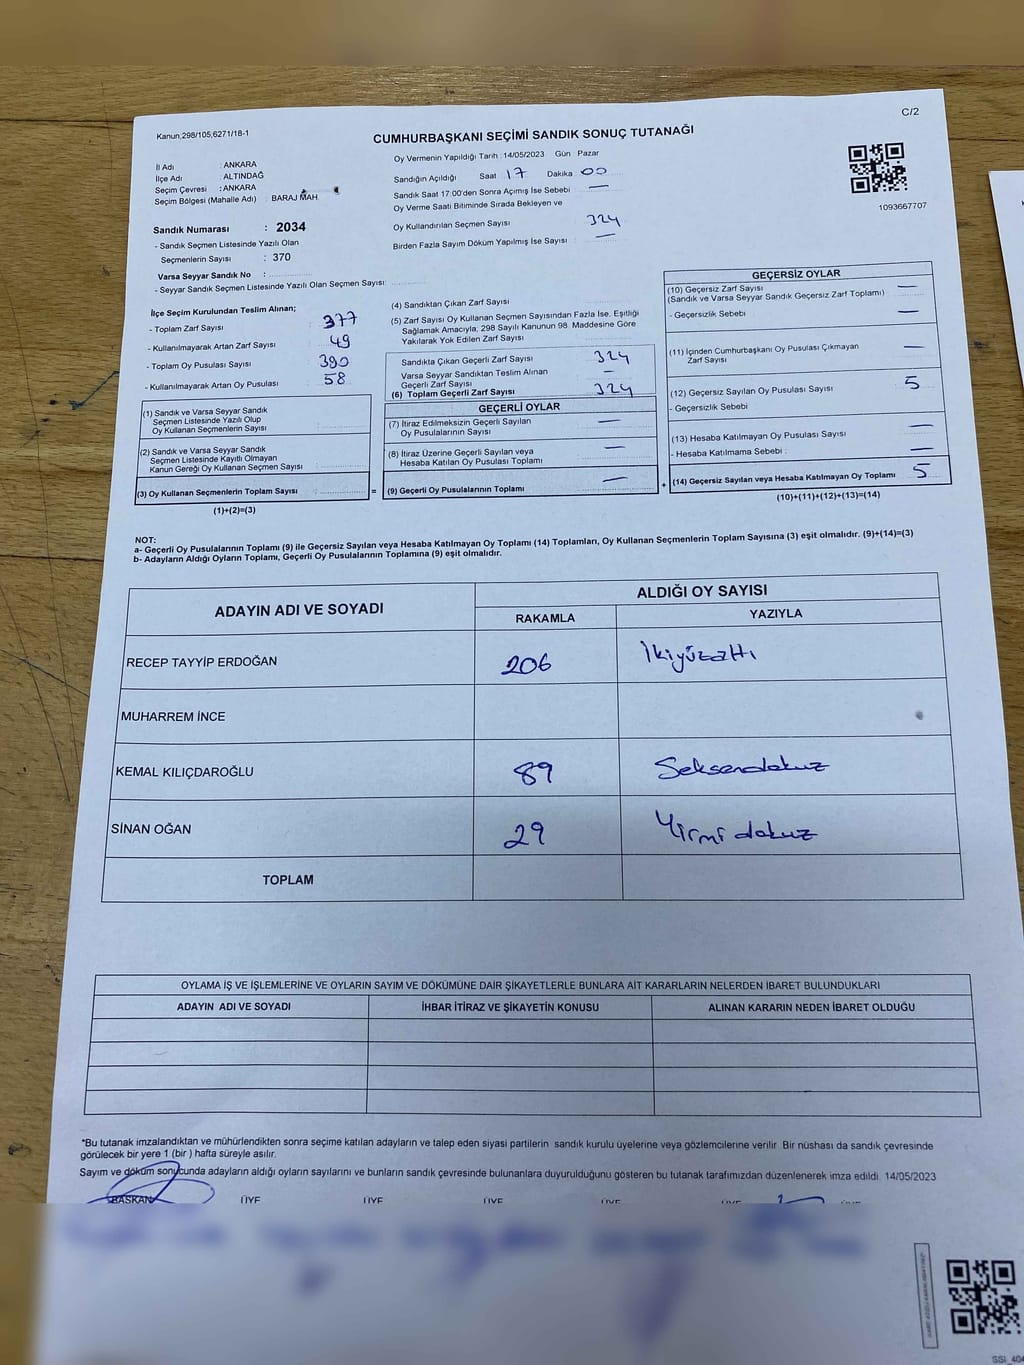 C/2
Kanun,298/105,6271/18-1
CUMHURBAŞKANI SEÇİMİ SANDIK SONUÇ TUTANAĞI
İl Adı : ANKARA
İlçe Adı : ALTINDAĞ
Seçim Çevresi : ANKARA
Seçim Bölgesi (Mahalle Adı) : BARAJ MAH.
Oy Vermenin Yapıldığı Tarih : 14/05/2023 Gün Pazar
Sandığın Açıldığı Saat 17 Dakika 00
Sandık Saat 17:00'den Sonra Açımış İse Sebebi —
Oy Verme Saati Bitiminde Sırada Bekleyen ve
Oy Kullandırılan Seçmen Sayısı 324
Birden Fazla Sayım Döküm Yapılmış İse Sayısı : —
1093667707
Sandık Numarası : 2034
- Sandık Seçmen Listesinde Yazılı Olan
Seçmenlerin Sayısı : 370
Varsa Seyyar Sandık No :
- Seyyar Sandık Seçmen Listesinde Yazılı Olan Seçmen Sayısı:
İlçe Seçim Kurulundan Teslim Alınan;
- Toplam Zarf Sayısı 377
- Kullanılmayarak Artan Zarf Sayısı 49
- Toplam Oy Pusulası Sayısı 390
- Kullanılmayarak Artan Oy Pusulası 58
(1) Sandık ve Varsa Seyyar Sandık
Seçmen Listesinde Yazılı Olup
Oy Kullanan Seçmenlerin Sayısı :
(2) Sandık ve Varsa Seyyar Sandık
Seçmen Listesinde Kayıtlı Olmayan
Kanun Gereği Oy Kullanan Seçmen Sayısı :
(3) Oy Kullanan Seçmenlerin Toplam Sayısı : =
(1)+(2)=(3)
(4) Sandıktan Çıkan Zarf Sayısı
(5) Zarf Sayısı Oy Kullanan Seçmen Sayısından Fazla İse, Eşitliği
Sağlamak Amacıyla, 298 Sayılı Kanunun 98. Maddesine Göre
Yakılarak Yok Edilen Zarf Sayısı
Sandıkta Çıkan Geçerli Zarf Sayısı 324
Varsa Seyyar Sandıktan Teslim Alınan
Geçerli Zarf Sayısı —
(6) Toplam Geçerli Zarf Sayısı 324
GEÇERLİ OYLAR
(7) İtiraz Edilmeksizin Geçerli Sayılan
Oy Pusulalarının Sayısı —
(8) İtiraz Üzerine Geçerli Sayılan veya
Hesaba Katılan Oy Pusulası Toplamı —
(9) Geçerli Oy Pusulalarının Toplamı — +
GEÇERSİZ OYLAR
(10) Geçersiz Zarf Sayısı —
(Sandık ve Varsa Seyyar Sandık Geçersiz Zarf Toplamı)
- Geçersizlik Sebebi —
(11) İçinden Cumhurbaşkanı Oy Pusulası Çıkmayan
Zarf Sayısı —
(12) Geçersiz Sayılan Oy Pusulası Sayısı 5
- Geçersizlik Sebebi
(13) Hesaba Katılmayan Oy Pusulası Sayısı —
- Hesaba Katılmama Sebebi : —
(14) Geçersiz Sayılan veya Hesaba Katılmayan Oy Toplamı 5
(10)+(11)+(12)+(13)=(14)
NOT:
a- Geçerli Oy Pusulalarının Toplamı (9) ile Geçersiz Sayılan veya Hesaba Katılmayan Oy Toplamı (14) Toplamları, Oy Kullanan Seçmenlerin Toplam Sayısına (3) eşit olmalıdır. (9)+(14)=(3)
b- Adayların Aldığı Oyların Toplamı, Geçerli Oy Pusulalarının Toplamına (9) eşit olmalıdır.
ADAYIN ADI VE SOYADI ALDIĞI OY SAYISI
RAKAMLA YAZIYLA
RECEP TAYYİP ERDOĞAN 206 İkiyüzaltı
MUHARREM İNCE
KEMAL KILIÇDAROĞLU 89 Seksendokuz
SİNAN OĞAN 29 Yirmi dokuz
TOPLAM
OYLAMA İŞ VE İŞLEMLERİNE VE OYLARIN SAYIM VE DÖKÜMÜNE DAİR ŞİKAYETLERLE BUNLARA AİT KARARLARIN NELERDEN İBARET BULUNDUKLARI
ADAYIN ADI VE SOYADI İHBAR İTİRAZ VE ŞİKAYETİN KONUSU ALINAN KARARIN NEDEN İBARET OLDUĞU
*Bu tutanak imzalandıktan ve mühürlendikten sonra seçime katılan adayların ve talep eden siyasi partilerin sandık kurulu üyelerine veya gözlemcilerine verilir. Bir nüshası da sandık çevresinde
görülecek bir yere 1 (bir ) hafta süreyle asılır.
Sayım ve döküm sonucunda adayların aldığı oyların sayılarını ve bunların sandık çevresinde bulunanlara duyurulduğunu gösteren bu tutanak tarafımızdan düzenlenerek imza edildi. 14/05/2023
BAŞKAN ÜYE ÜYE ÜYE ÜYE ÜYE ÜYE